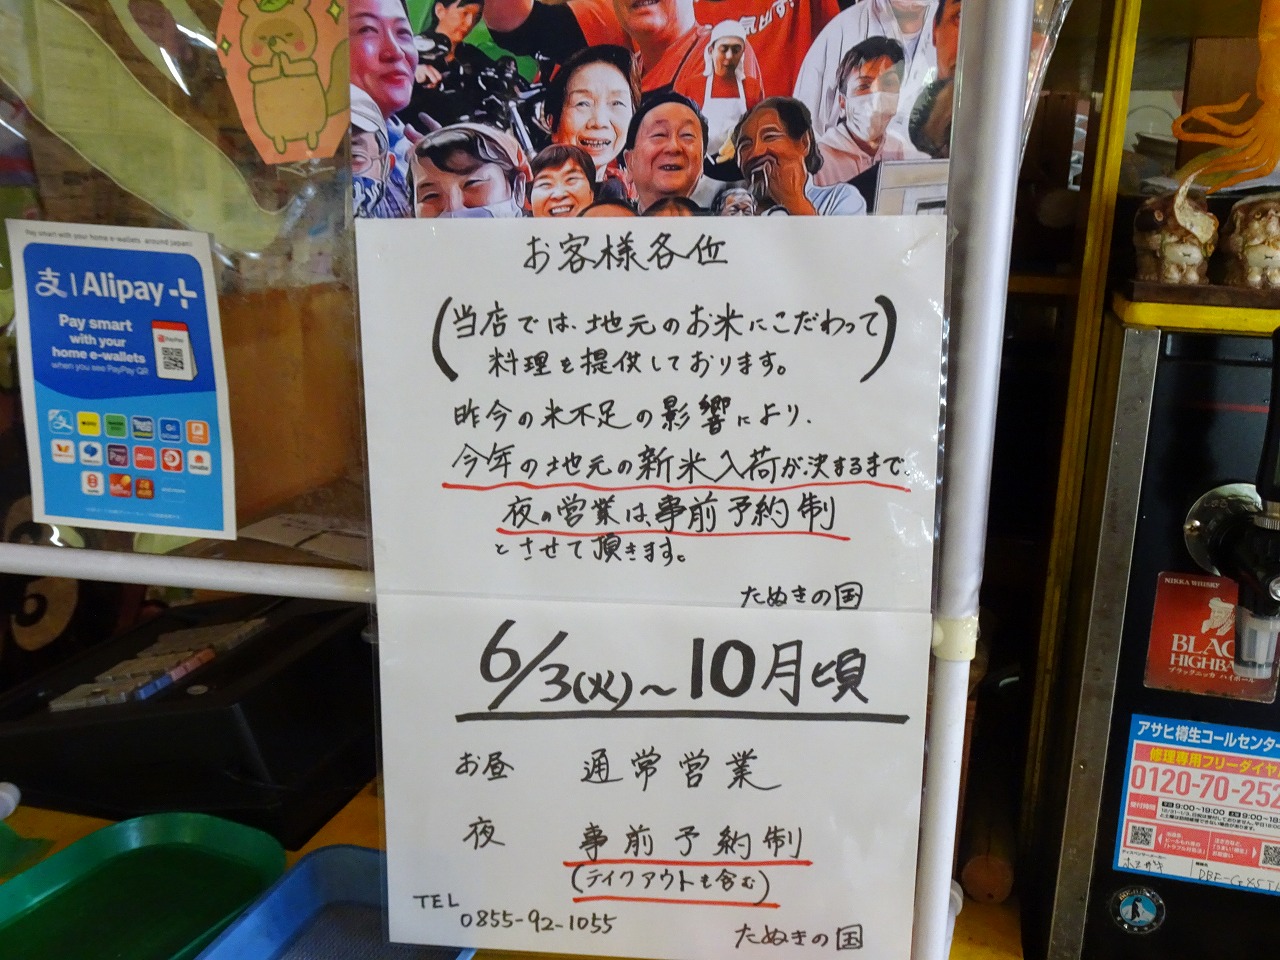 お客様各位
(当店では、地元のお米にこだわって
料理を提供しております。)
昨今の米不足の影響により、
今年の地元の新米入荷が決するまで、
夜の営業は、事前予約制
とさせて頂きます。
たぬきの国
6/3(火)~10月頃
お昼 通常営業
夜 事前予約制
(テイクアウトも含む)
TEL 0855-92-1055
たぬきの国
Pay smart with your home e-wallets around Japan!
支 Alipay+
Pay smart
with your
home e-wallets
when you see PayPay QR
NIKKA WHISKY
BLAC
HIGHBA
ブラックニッカ ハイボール
アサヒ樽生コールセンター
修理専用フリーダイヤ
0120-70-252
受付時間
9:00~19:00
ホシザキ